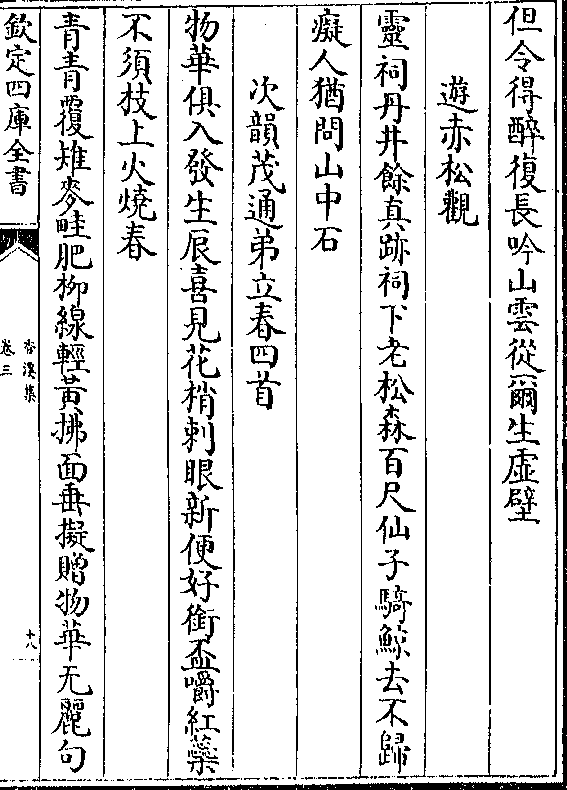 但令得醉復長吟山雲從爾生虛壁
遊赤松觀
靈祠丹井餘真跡祠下老松森百尺仙子騎鯨去不歸
癡人猶問山中石
次韻茂通弟立春四首
物華俱入發生辰喜見花梢刺眼新便好銜盃嚼紅蘂
不須枝上火燒春
青青覆雉麥畦肥柳線輕黃拂面垂擬贈物華无麗句
欽定四庫全書
香溪集
卷三
十八